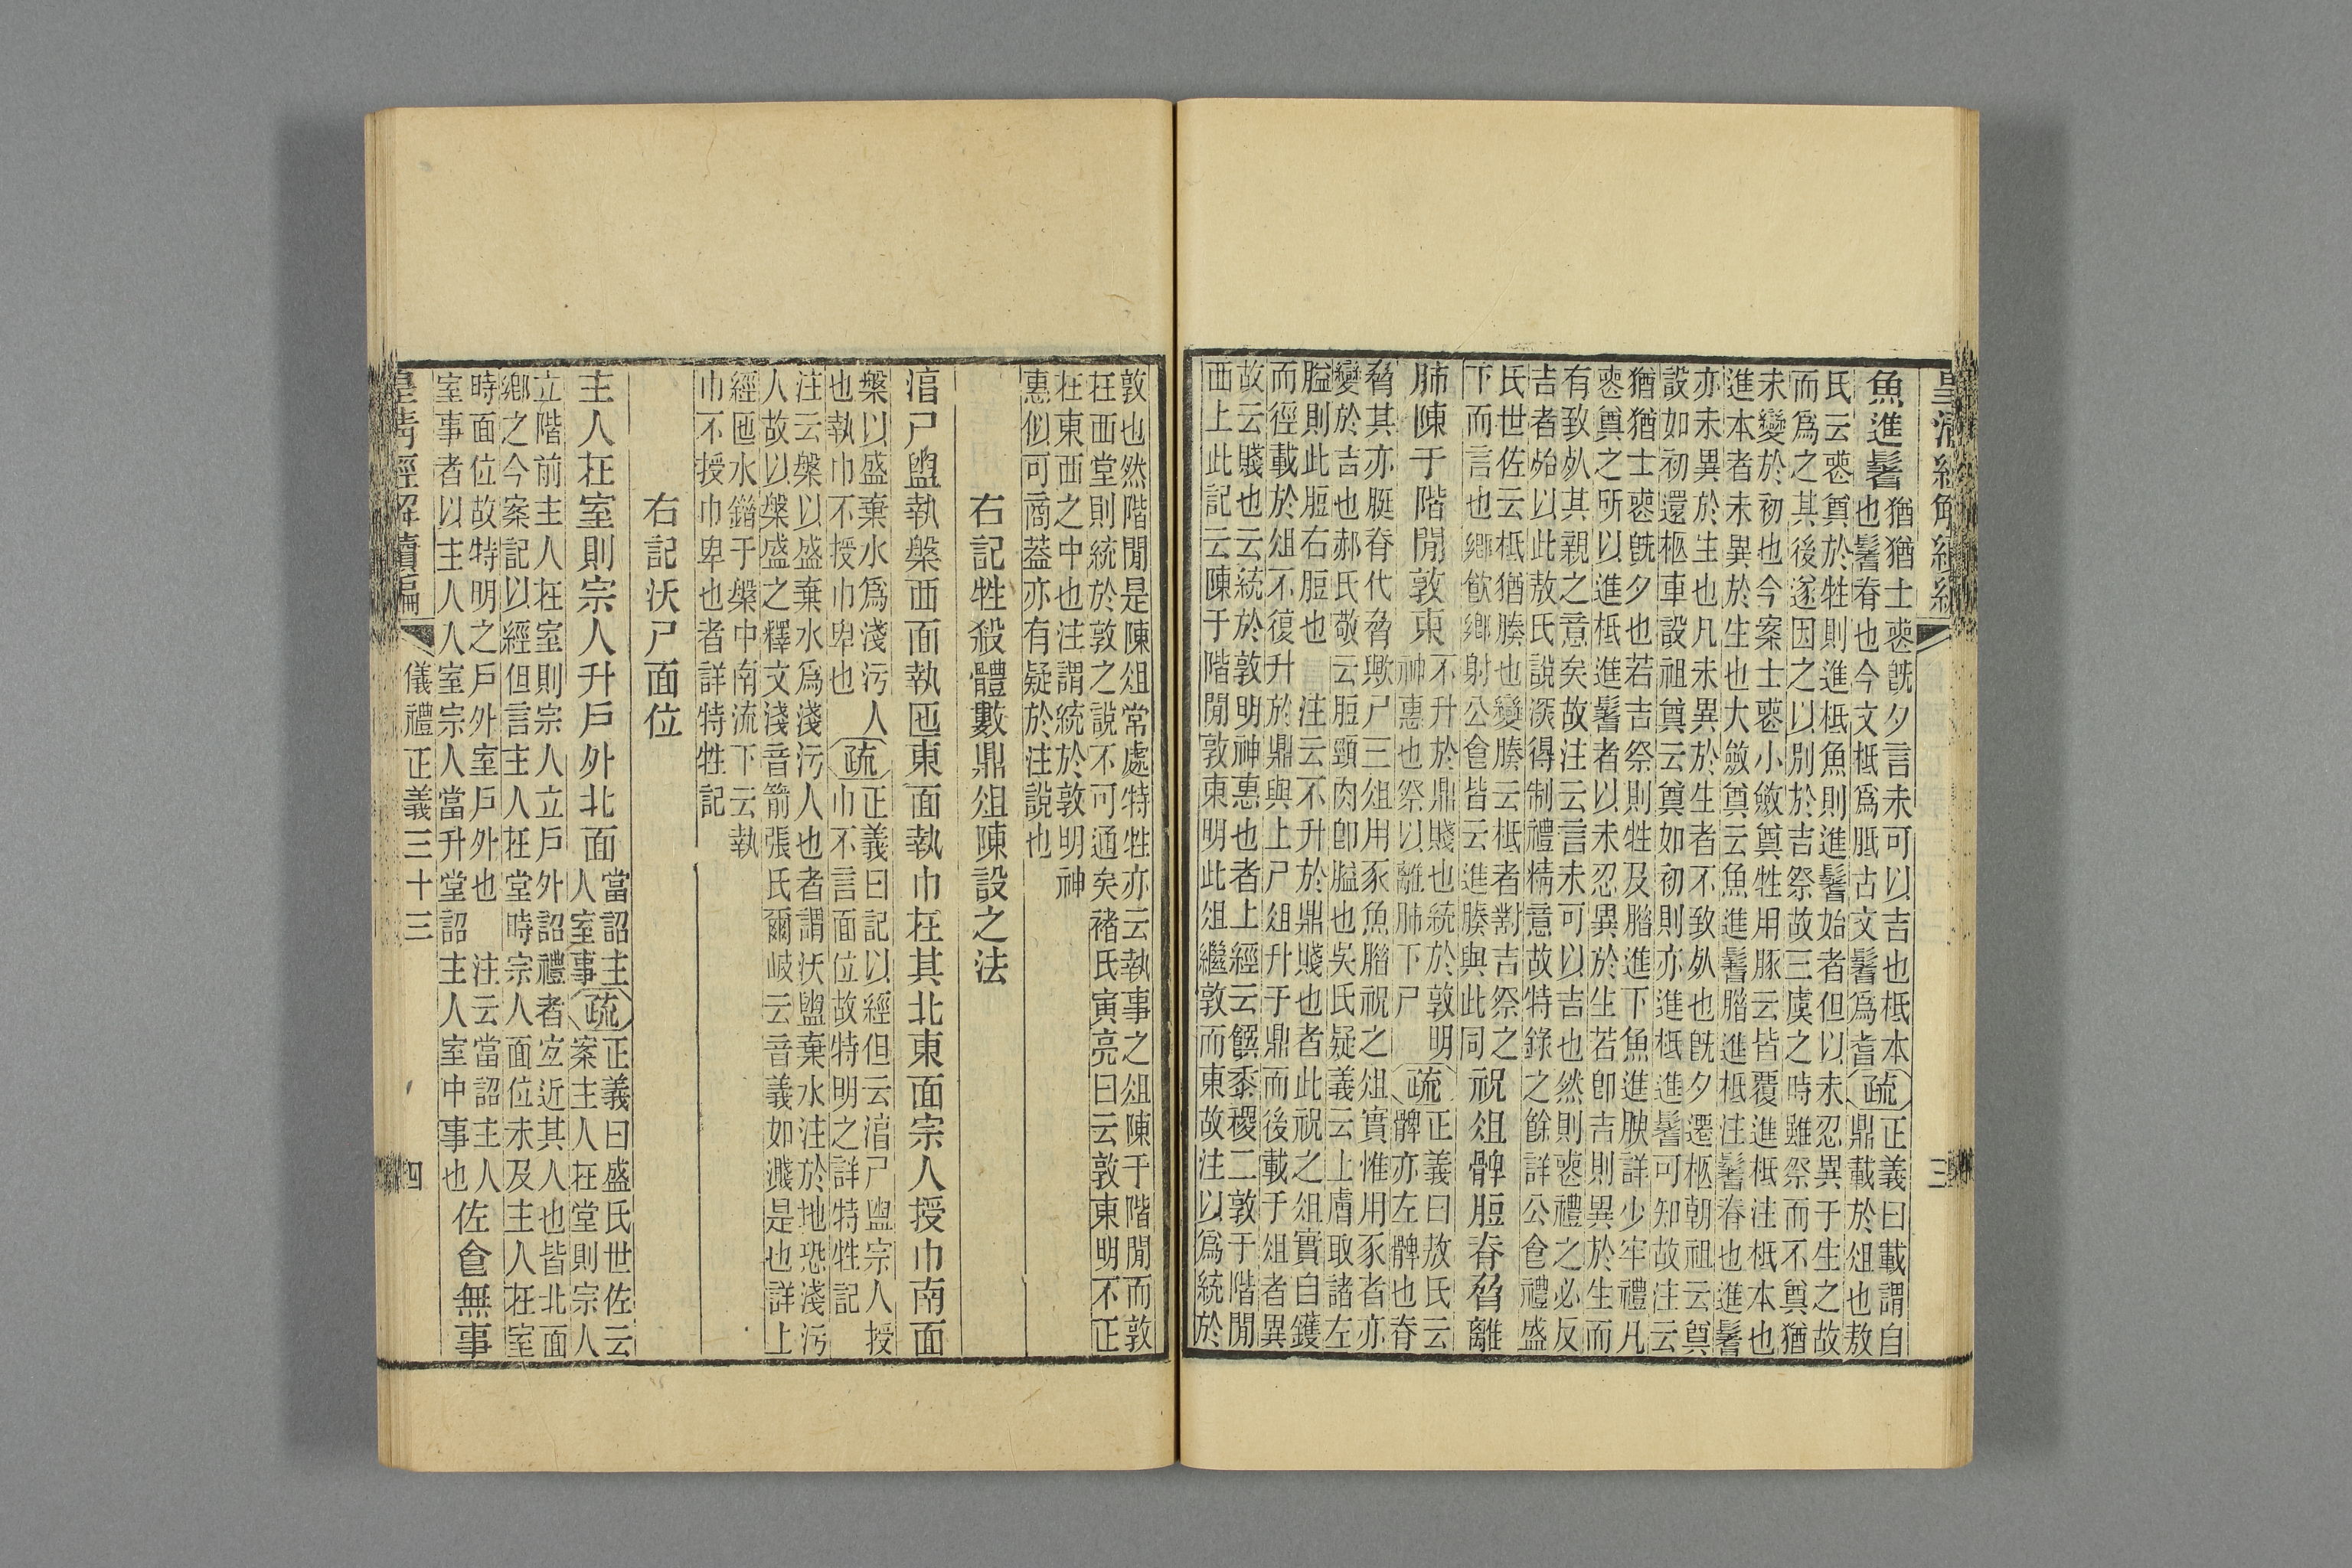 皇清經解續編 三
魚進鬐
猶猶士喪既夕言未可以吉也柢本
也鬐脊也今文柢爲胝古文鬐爲耆
疏
正義曰載謂自
鼎載於俎也敖
氏云喪奠於牲則進柢魚則進鬐始者但以未忍異于生之故
而爲之其後遂因之以別於吉祭故三虞之時雖祭而不奠猶
未變於初也今案士喪小斂奠牲用豚云皆覆進柢注柢本也
進本者未異於生也大斂奠云魚進鬐腊進柢注鬐脊也進鬐
亦未異於生也凡未異於生者不致死也既夕遷柩朝祖云奠
設如初還柩車設祖奠云奠如初則亦進柢進鬐可知故注云
猶猶士喪既夕也若吉祭則牲及腊進下魚進腴詳少牢禮凡
喪奠之所以進柢進鬐者以未忍異於生若卽吉則異於生而
有致死其親之意矣故注云言未可以吉也然則喪禮之必反
吉者殆以此敖氏說深得制禮精意故特錄之餘詳公食禮盛
氏世佐云柢猶腠也變腠云柢者對吉祭之
下而言也鄉飮鄉射公食皆云進腠與此同
祝俎髀脰脊脅離
肺陳于階閒敦東
不升於鼎賤也統於敦明
神惠也祭以離肺下尸
疏
正義曰敖氏云
髀亦左髀也脊
脅其亦脡脊代脅歟尸三俎用豕魚腊祝之俎實惟用豕者亦
變於吉也郝氏敬云脰頸肉卽膉也吳氏疑義云上膚取諸左
膉則此脰右脰也 注云不升於鼎賤也者此祝之俎實自鑊
而徑載於俎不復升於鼎與上尸俎升于鼎而後載于俎者異
故云賤也云統於敦明神惠也者上經云饌黍稷二敦于階閒
西上此記云陳于階閒敦東明此俎繼敦而東故注以爲統於
敦也然階閒是陳俎常處特牲亦云執事之俎陳于階閒而敦
在西堂則統於敦之說不可通矣褚氏寅亮曰云敦東明不正
在東西之中也注謂統於敦明神
惠似可商葢亦有疑於注說也
右記牲殺體數鼎俎陳設之法
淊尸盥執槃西面執匜東面執巾在其北東面宗人授巾南面
槃以盛棄水爲淺污人
也執巾不授巾卑也
疏
正義曰記以經但云淊尸盥宗人授
巾不言面位故特明之詳特牲記
注云槃以盛棄水爲淺污人也者謂沃盥棄水注於地恐淺污
人故以槃盛之釋文淺音箭張氏爾岐云音義如濺是也詳上
經匜水錯于槃中南流下云執
巾不授巾卑也者詳特牲記
右記沃尸面位
主人在室則宗人升戶外北面
當詔主
人室事
疏
正義曰盛氏世佐云
案主人在堂則宗人
立階前主人在室則宗人立戶外詔禮者宜近其人也皆北面
鄉之今案記以經但言主人在堂時宗人面位未及主人在室
時面位故特明之戶外室戶外也 注云當詔主人
室事者以主人入室宗人當升堂詔主人室中事也
佐食無事
皇清經解續編 儀禮正義三十三 四